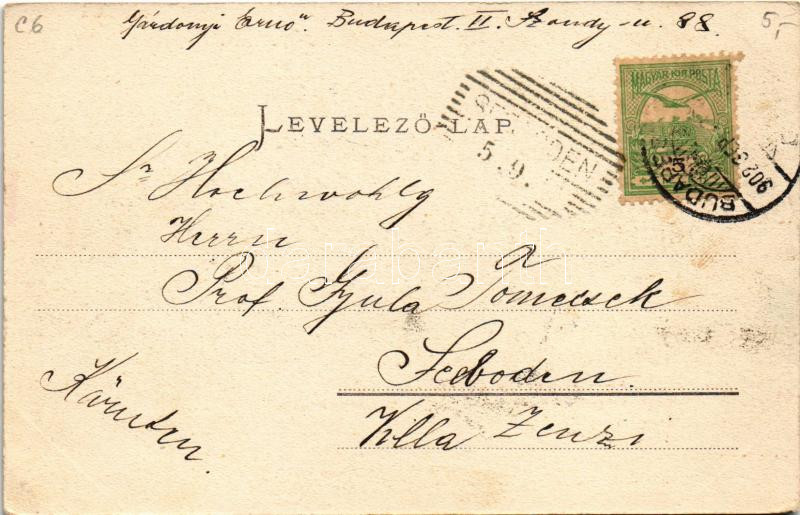 C6
5,-
"Gárdonyi Ernő". Budapest. II. Szondy-u. 88.
MAGYAR·KIR·POSTA
SEEBODEN
5.9.
BUDAPEST
902
LEVELEZŐ-LAP.
Sr Hochwohlg
Herrn
à
Prof. Gyula Tomcsek
Seeboden.
Kärnten.
Villa Zenzi